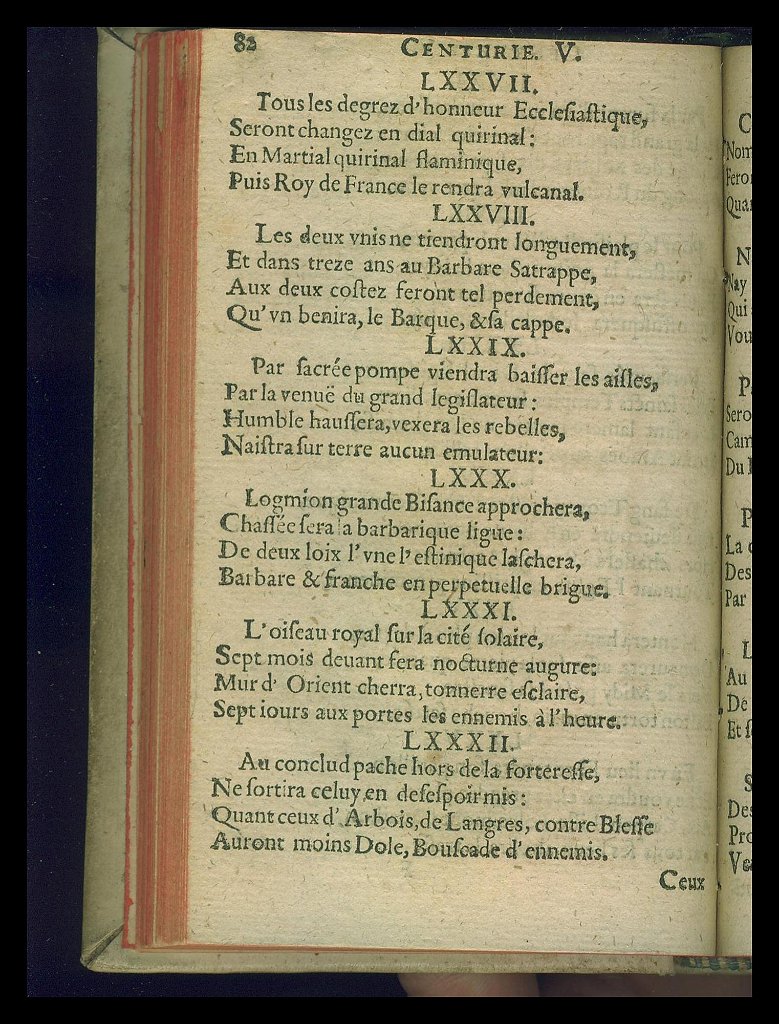 82 CENTURIE. V.
LXXVII.
Tous les degrez d'honneur Ecclesiaſtique,
Seront changez en dial quirinal:
En Martial quirinal flaminique,
Puis Roy de France le rendra vulcanal.
LXXVIII.
Les deux vnis ne tiendront longuement,
Et dans treze ans au Barbare Satrappe,
Aux deux coſtez feront tel perdement,
Qu'vn benira, le Barque, & ſa cappe.
LXXIX.
Par ſacrée pompe viendra baiſſer les aiſles,
Par la venuë du grand legiſlateur:
Humble hauſſera, vexera les rebelles,
Naiſtra ſur terre aucun emulateur:
LXXX.
Logmion grande Biſance approchera,
Chaſſée ſera la barbarique ligue:
De deux loix l'vne l'eſtinique laſchera,
Barbare & franche en perpetuelle brigue.
LXXXI.
L'oiſeau royal ſur la cité ſolaire,
Sept mois deuant fera nocturne augure:
Mur d'Orient cherra, tonnerre eſclaire,
Sept iours aux portes les ennemis à l'heure.
LXXXII.
Au conclud pache hors de la fortereſſe,
Ne ſortira celuy en deſeſpoir mis:
Quant ceux d'Arbois, de Langres, contre Bleſſe
Auront moins Dole, Bouſcade d'ennemis.
Ceux